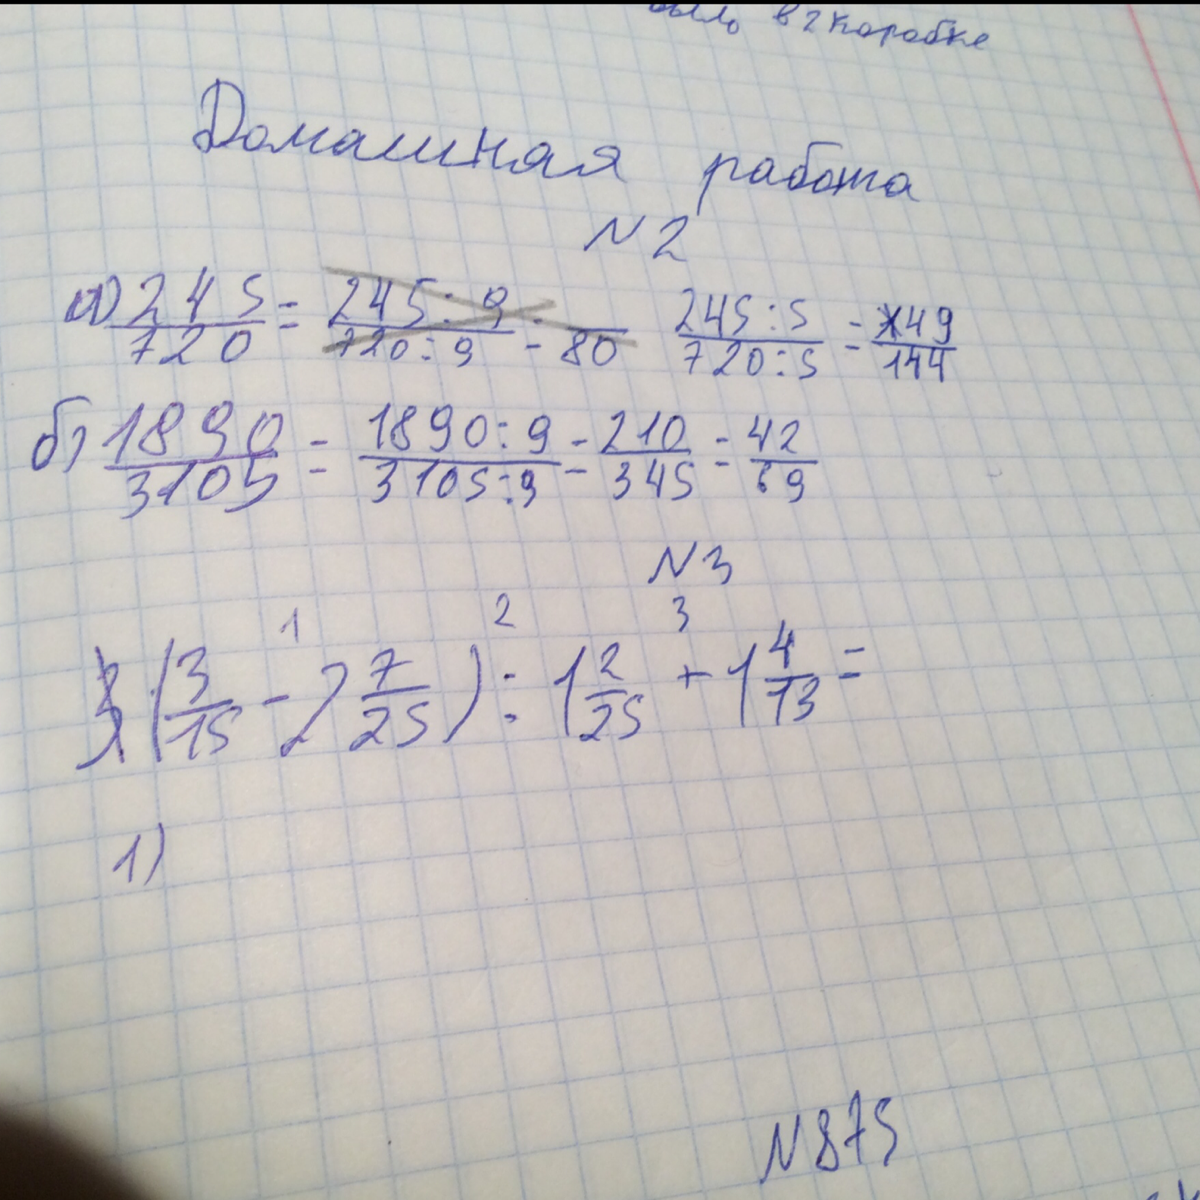 было в 2 коробке
Домашная работа
N2
а) 245/720 = 245:9/720:9 = /80 245:5/720:5 = 49/144
б) 1890/3105 = 1890:9/3105:9 = 210/345 = 42/69
N3
1 2 3
(3/15 - 2 7/25) : 1 2/25 + 1 4/13 =
1)
N875